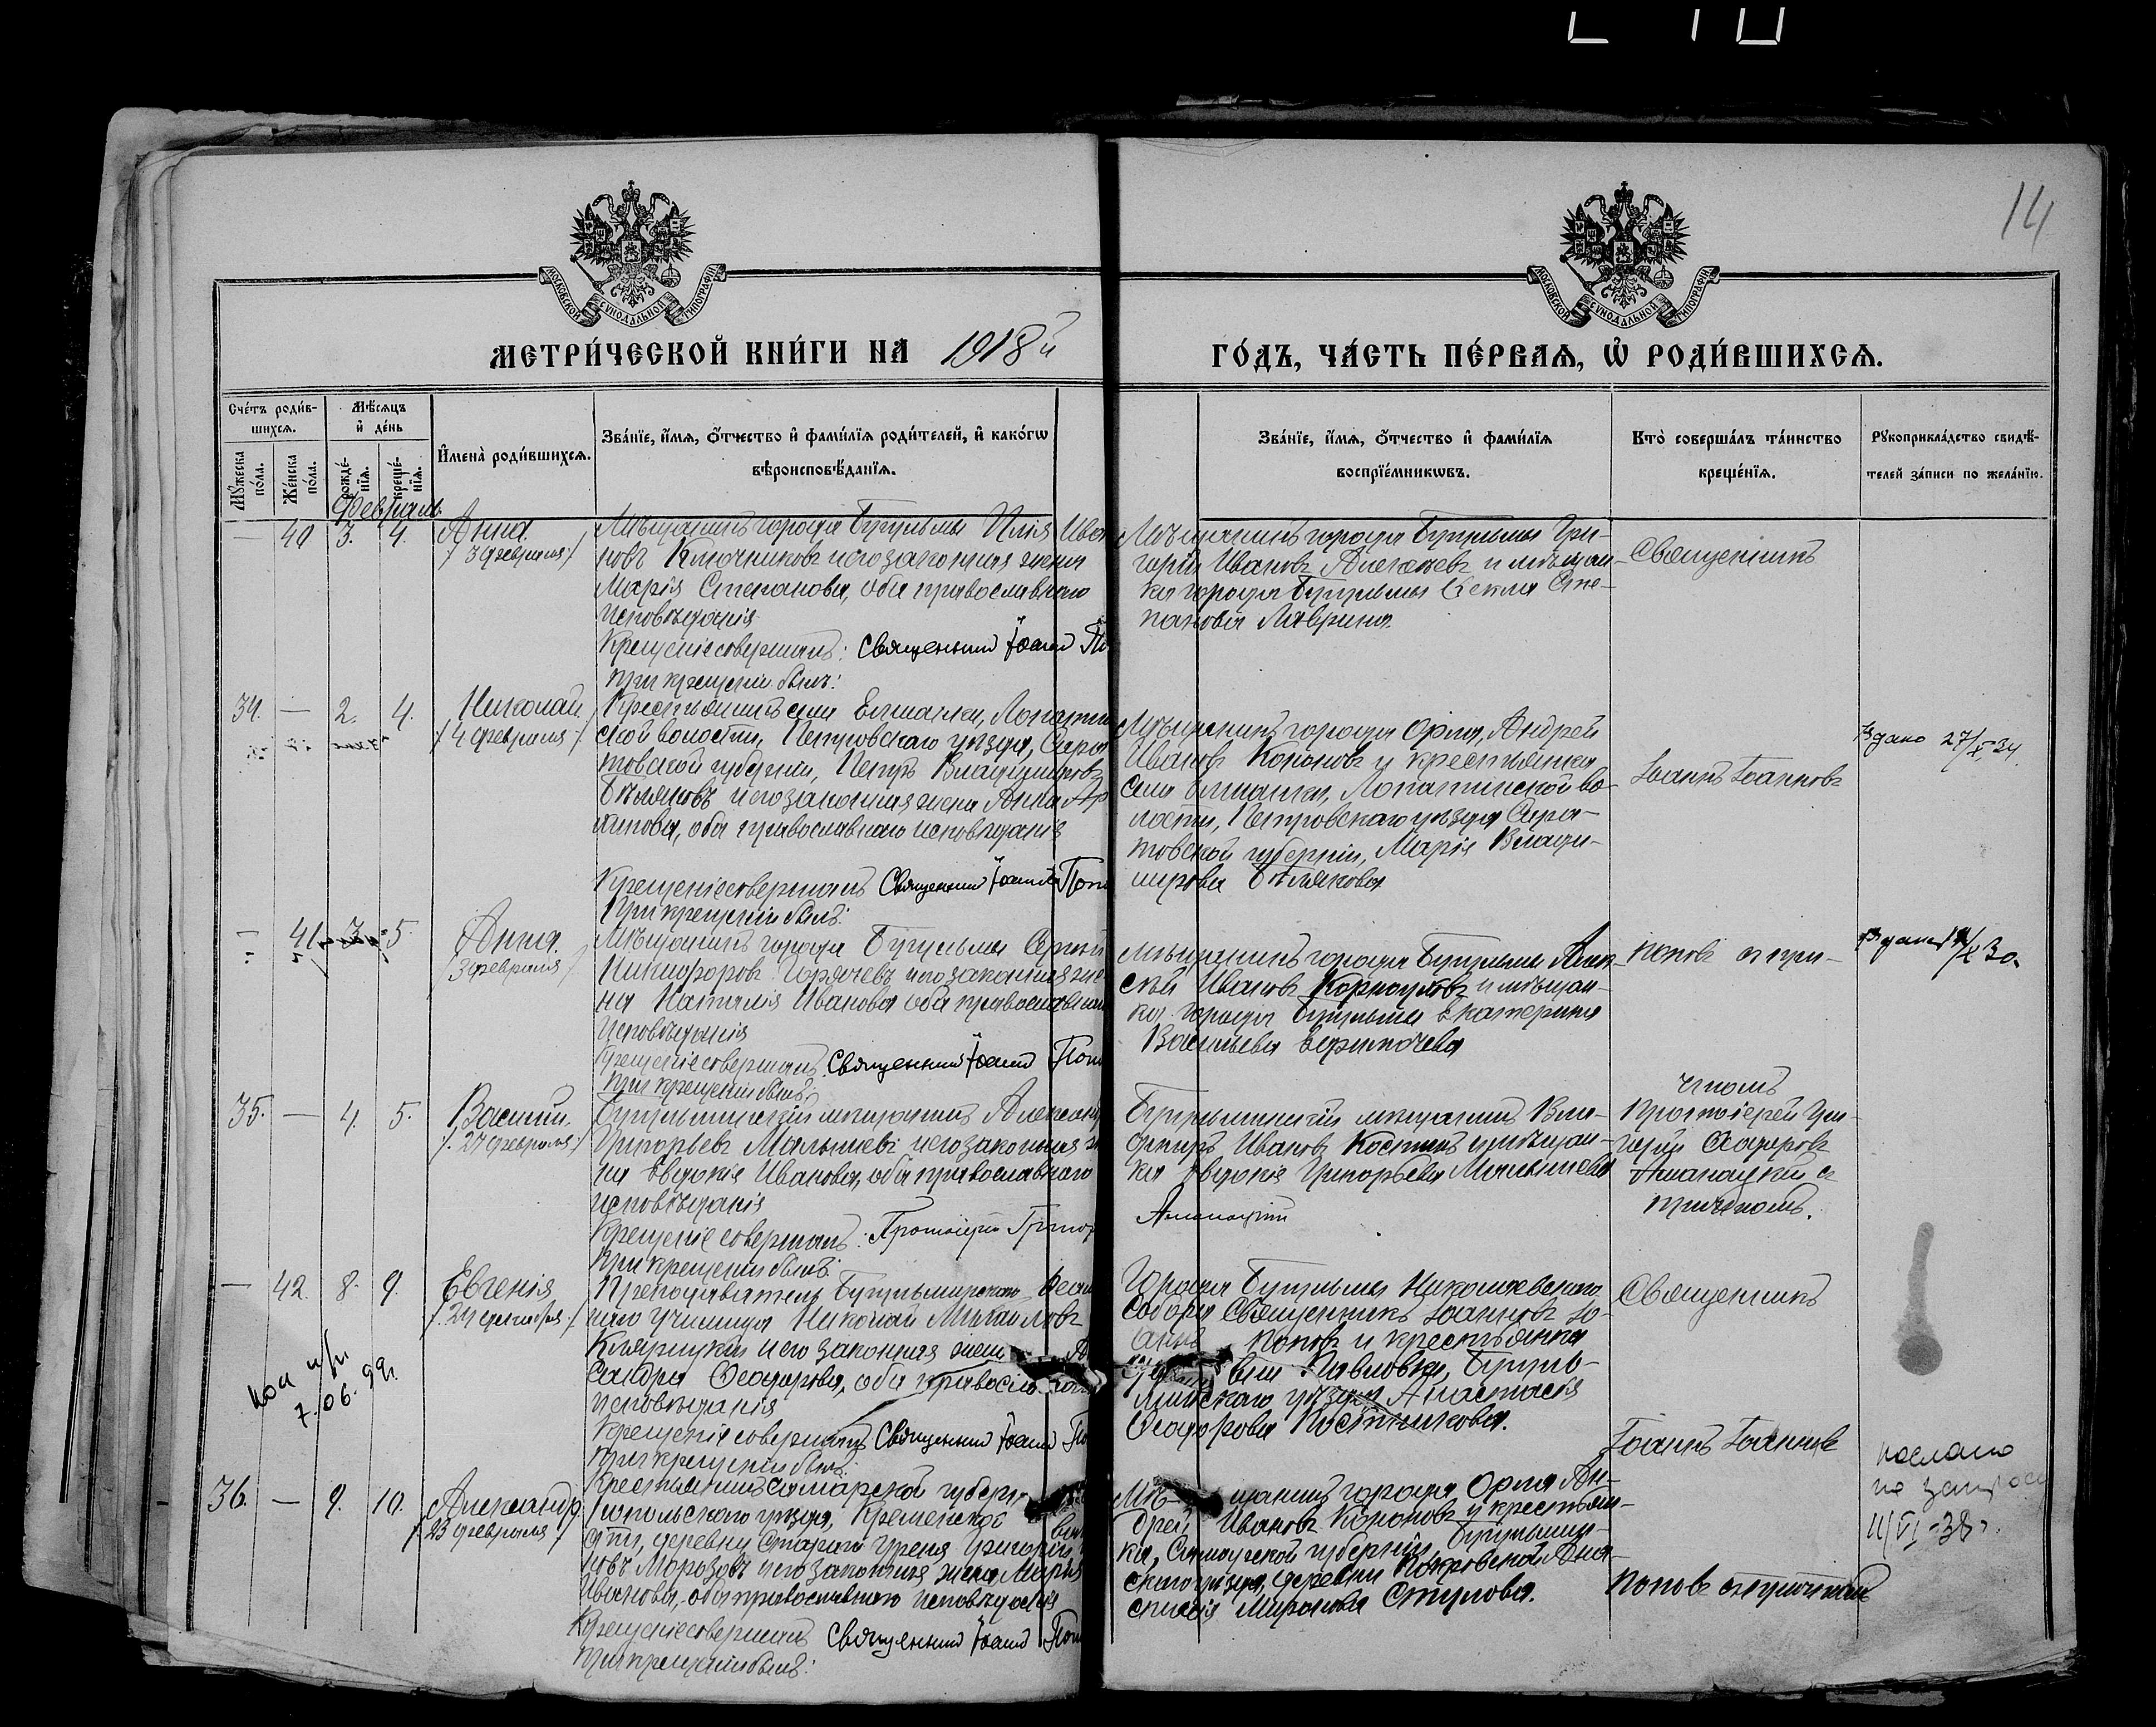 14
МОСКОВСКОЙ СУНОДАЛЬНОЙ ТИПОГРАФІИ
МОСКОВСКОЙ СУНОДАЛЬНОЙ ТИПОГРАФІИ
МЕТРИ́ЧЕСКОЙ КНИ́ГИ НА 1918й
ГО́ДЪ, ЧА́СТЬ ПЕ́РВАѦ, Ѡ҆ РОДИ́ВШИХСѦ.
Сче́тъ роди́в-
шихсѧ.
Мѣ́сѧцъ
и҆ де́нь
Мꙋ́жеска по́ла.
Же́нска по́ла.
рожде́-нїѧ.
креще́-нїѧ.
И҆мена̀ роди́вшихсѧ.
Зва́нїе, и҆́мѧ, ѻ҆́тчество и҆ фами́лїѧ роди́телей, и҆ како́гѡ
вѣроисповѣ́данїѧ.
Зва́нїе, и҆́мѧ, ѻ҆́тчество и҆ фами́лїѧ
воспрїе́мникѡвъ.
Кто̀ соверша́лъ та́инство
креще́нїѧ.
Рꙋкоприкла́дство свидѣ́-
телей за́писи по жела́нїю.
Февраль.
— 40 3. 4. Анна.
/3 февраля/
Мѣщанинъ города Бугульмы Илія Ива
новъ Ключниковъ и его законная жена
Марія Степанова, оба православнаго
исповѣданія
Крещеніе совершалъ: Священникъ Іоаннъ По
При крещеніи былъ:
Мѣщанинъ города Бугульмы Гри-
горій Ивановъ и мѣщан-
ка города Бугульмы Ѳекла Сте-
панова Лаврина.
Священникъ
34. — 2. 4. Николай.
/4 февраля/
Крестьянинъ села Елшанки, Лопатин
ской волости, Петровскаго уѣзда, Сара
товской губерніи, Петръ Владиміровъ
Бѣляковъ и его законная жена Анна Ар
хипова, оба православнаго исповѣданія
Крещеніе совершалъ Священникъ Іоаннъ Попо
При крещеніи былъ:
Мѣщанинъ города Орла, Андрей
Ивановъ Кононовъ и крестьянка
села Елшанки, Лопатинской во-
лости, Петровскаго уѣзда Сара-
товской губерніи, Марія Влади-
мірова Бѣлякова
Іоаннъ Іоанновъ
Выдано 27/X 34.
— 41 3. 5. Анна.
/3 февраля/
Мѣщанинъ города Бугульмы Сергѣй
Никифоровъ Горячевъ и его законная же
на Наталія Иванова оба православнаго
исповѣданія
Крещеніе совершалъ Священникъ Іоаннъ Попо
При крещеніи былъ:
Мѣщанинъ города Бугульмы Алек-
сѣй Ивановъ и мѣщан-
ка города Бугульмы Екатерина
Васильева
Поповъ съ при-
чтомъ
35. — 4. 5. Василій.
/27 февраля/
Бугульминскій мѣщанинъ Александръ
Григорьевъ Малышевъ и его законная же
на Евдокія Иванова, оба православнаго
исповѣданія
Крещеніе совершалъ: Протоіерей Григор
При крещеніи былъ:
Бугульминскій мѣщанинъ Вла-
диміръ Ивановъ Костинъ и мѣщан-
ка Евдокія Григорьева Малышева
Протоіерей Гри-
горій Ѳеодоровъ
съ
причтомъ.
— 42. 8. 9. Евгенія
коп
7.06.99г.
Преподаватель Бугульминскаго Реаль
наго училища Николай Михайловъ
и его законная жена
сандра Ѳеодорова, оба православ
исповѣданія
Крещеніе совершалъ Священникъ Іоаннъ По
При крещеніи былъ:
Города Бугульмы Николаевскаго
Собора Священникъ Іоанновъ Іо-
аннъ Поповъ и крестьянка
Павловки, Бугуль-
минскаго уѣзда Анастасія
Ѳеодорова Постникова.
Священникъ
Іоаннъ Іоанновъ
36. — 9. 10. Александръ
/23 февраля/
Крестьянинъ Самарской губерн
польскаго уѣзда, Кременской
сти, деревни Старой Уреня Григорій
новъ Морозовъ и его законная жена Марія
Иванова, оба православнаго исповѣданія
Крещеніе совершалъ Священникъ Іоаннъ Попо
При крещеніи былъ:
Мѣщанинъ города Орла Ан-
дрей Ивановъ Кононовъ и крестьян-
ка, Самарской губерніи, Бугульмин-
скаго уѣзда, деревни Покровской Ана-
стасія Миронова Стулова.
Поповъ съ причтомъ
послано
по запросу
11/VI-38г.